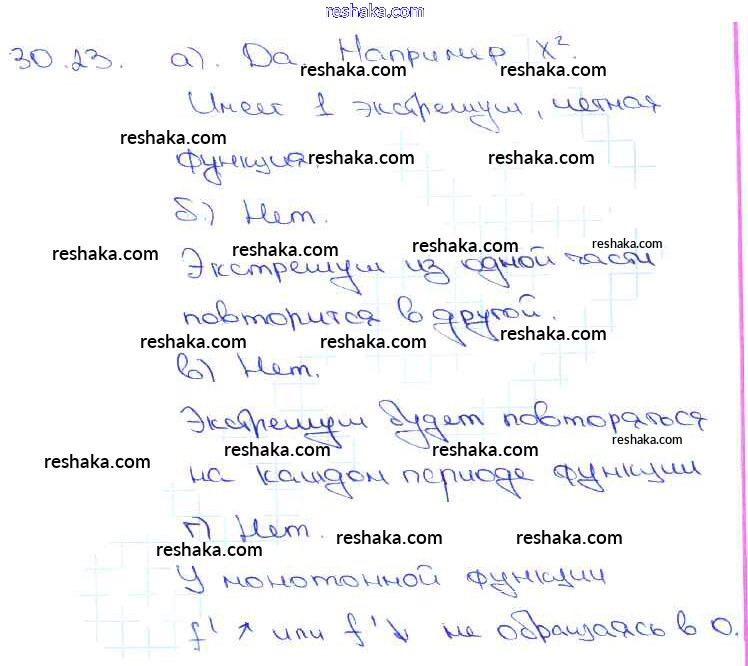 reshaka.com
30.23. а). Да. Например x².
reshaka.com reshaka.com
Имеет 1 экстремум, четная
reshaka.com
функция.
reshaka.com reshaka.com
б.) Нет.
reshaka.com reshaka.com reshaka.com reshaka.com
Экстремум из одной части
повторится в другой.
reshaka.com reshaka.com reshaka.com
в) Нет.
Экстремум будет повторяться
reshaka.com
на каждом периоде функции
reshaka.com
г) Нет.
reshaka.com reshaka.com reshaka.com
У монотонной функции
f' ↗ или f' ↘ не обращаясь в 0.